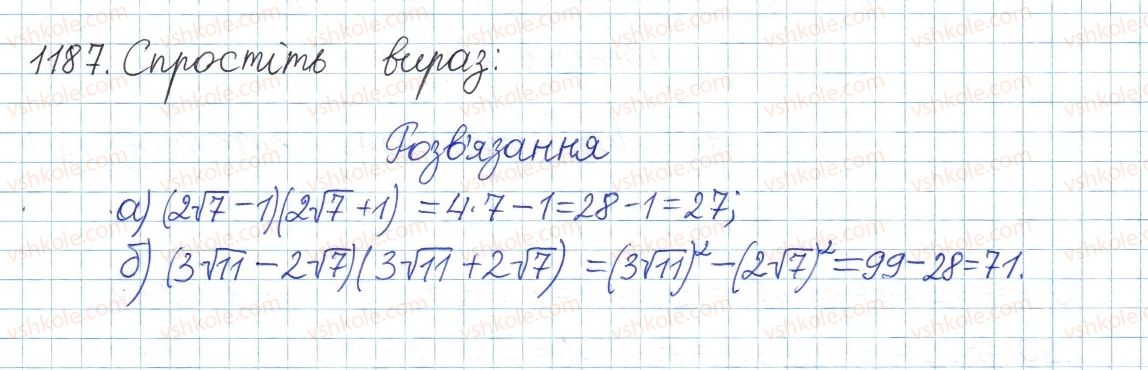 1187. Спростіть вираз:
Розв'язання
а) (2√7 − 1)(2√7 + 1) = 4·7 − 1 = 28 − 1 = 27;
б) (3√11 − 2√7)(3√11 + 2√7) = (3√11)² − (2√7)² = 99 − 28 = 71.